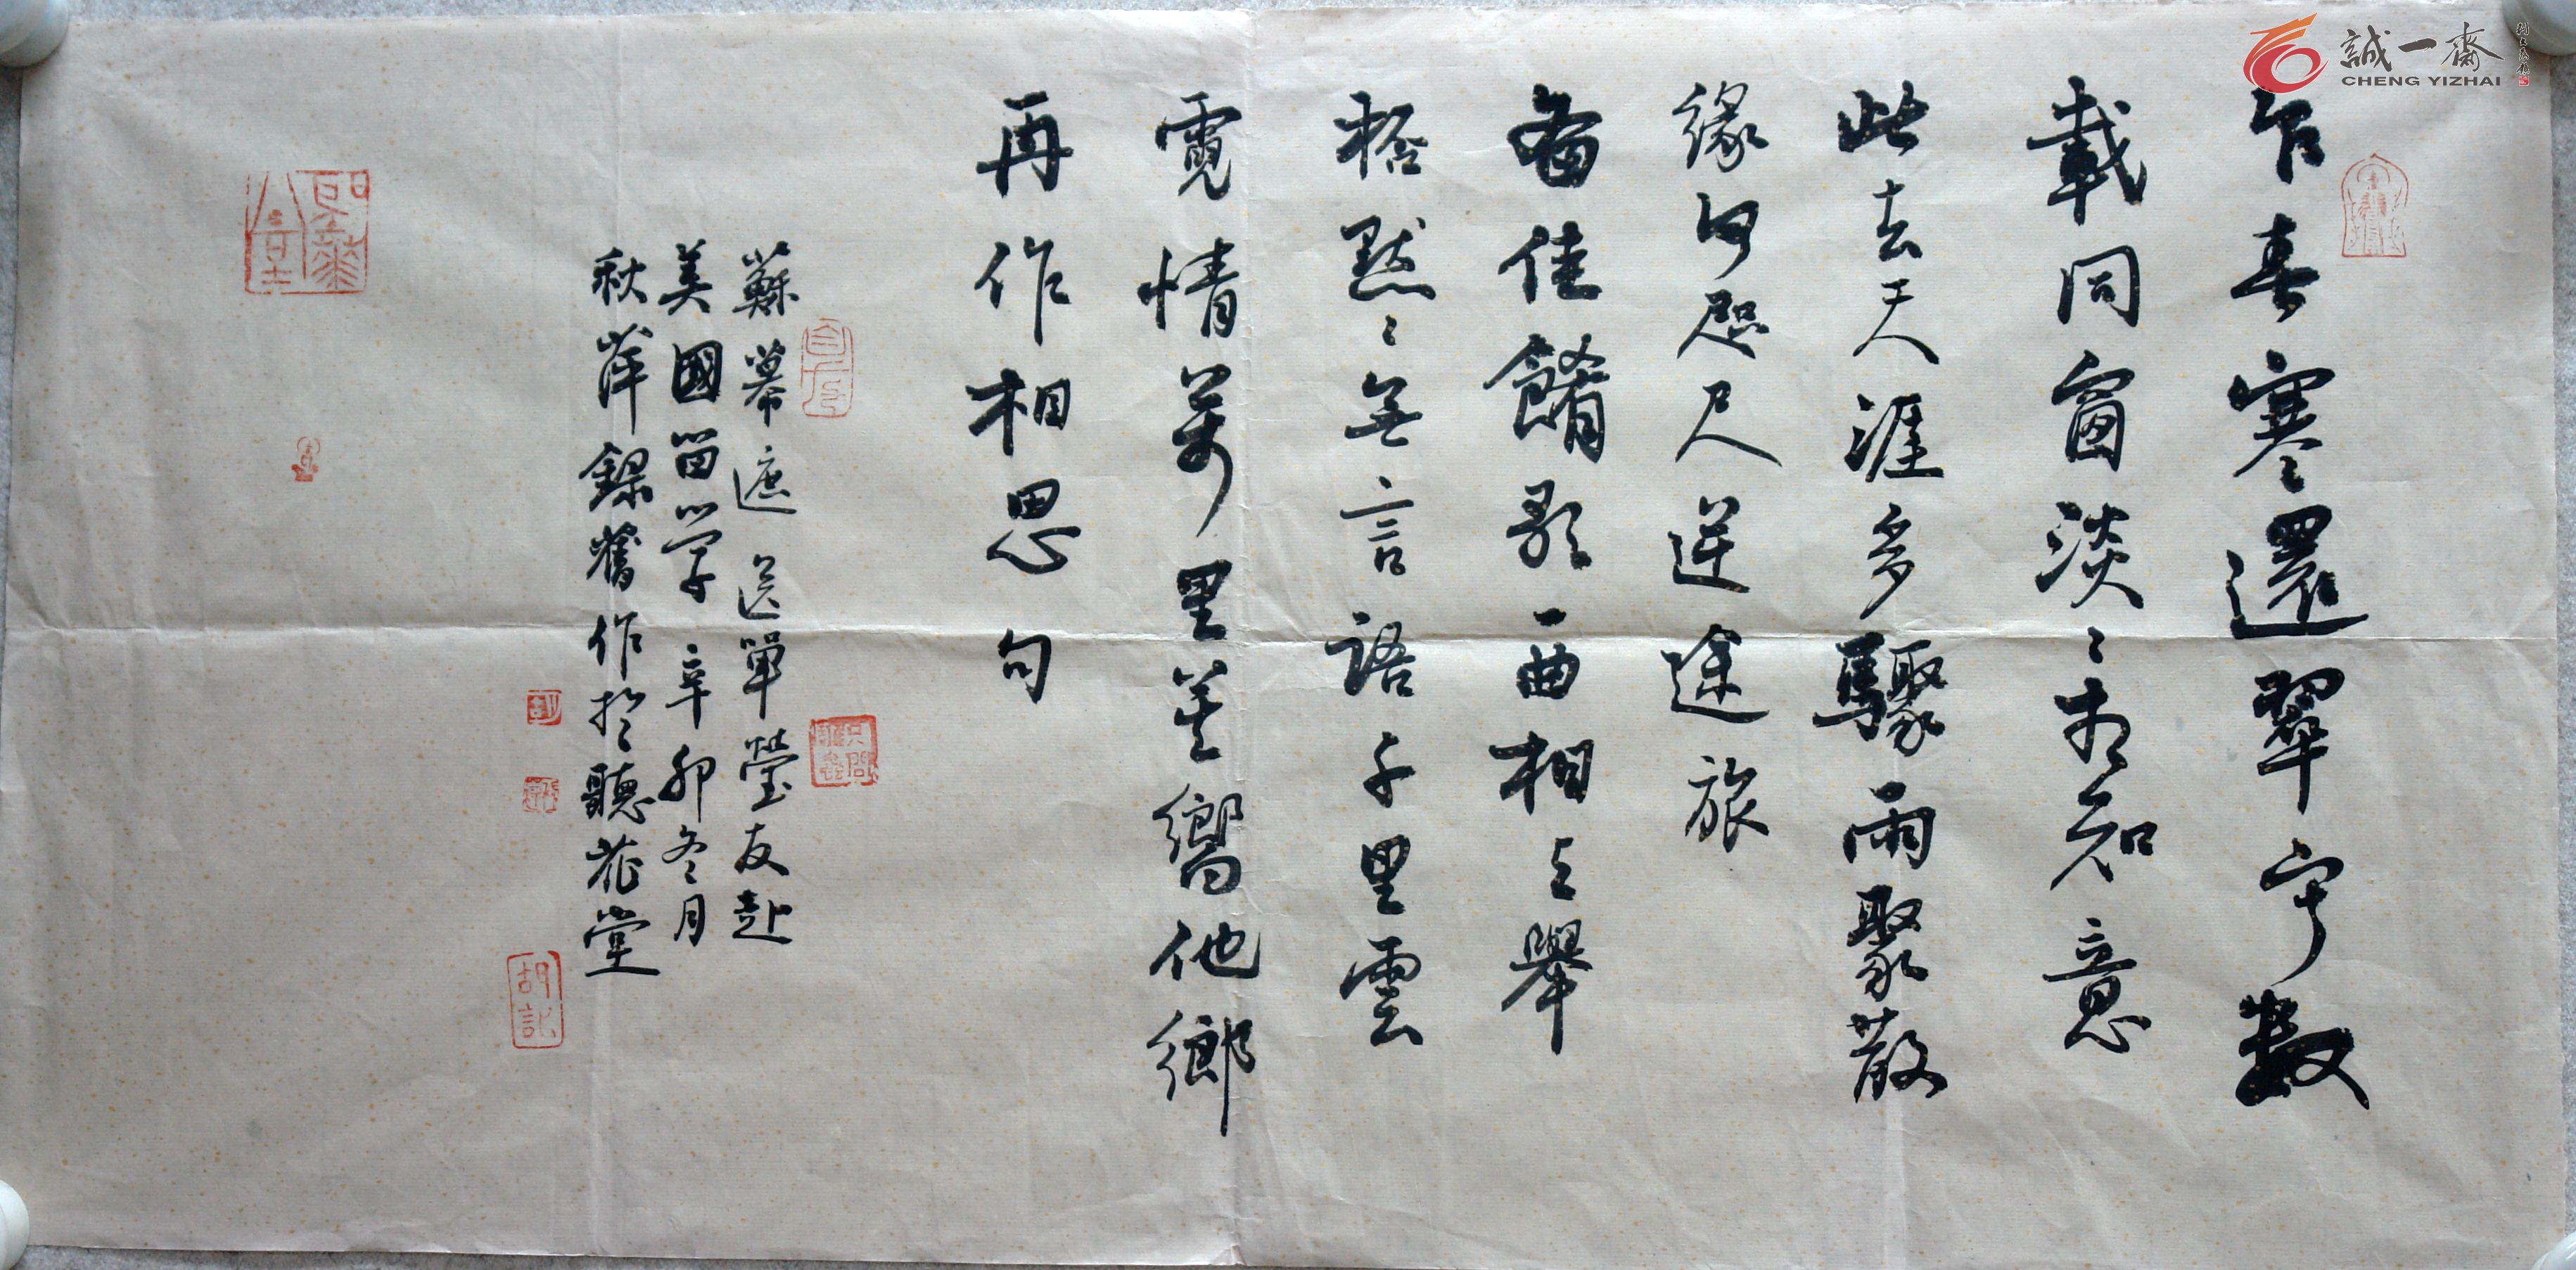 乍春寒還翠宇數
載同窗淡淡相知意
此去天涯多驟雨聚散
緣何咫尺逆途旅
備佳餚歌一曲相與舉
桮默默無言語千里雲
霓情萬里莫嚮他鄉
再作相思句
蘇幕遮 送單瑩友赴
美國留學 辛卯冬月
秋萍錄舊作於聽花堂
胡記
誠一齋
CHENG YIZHAI